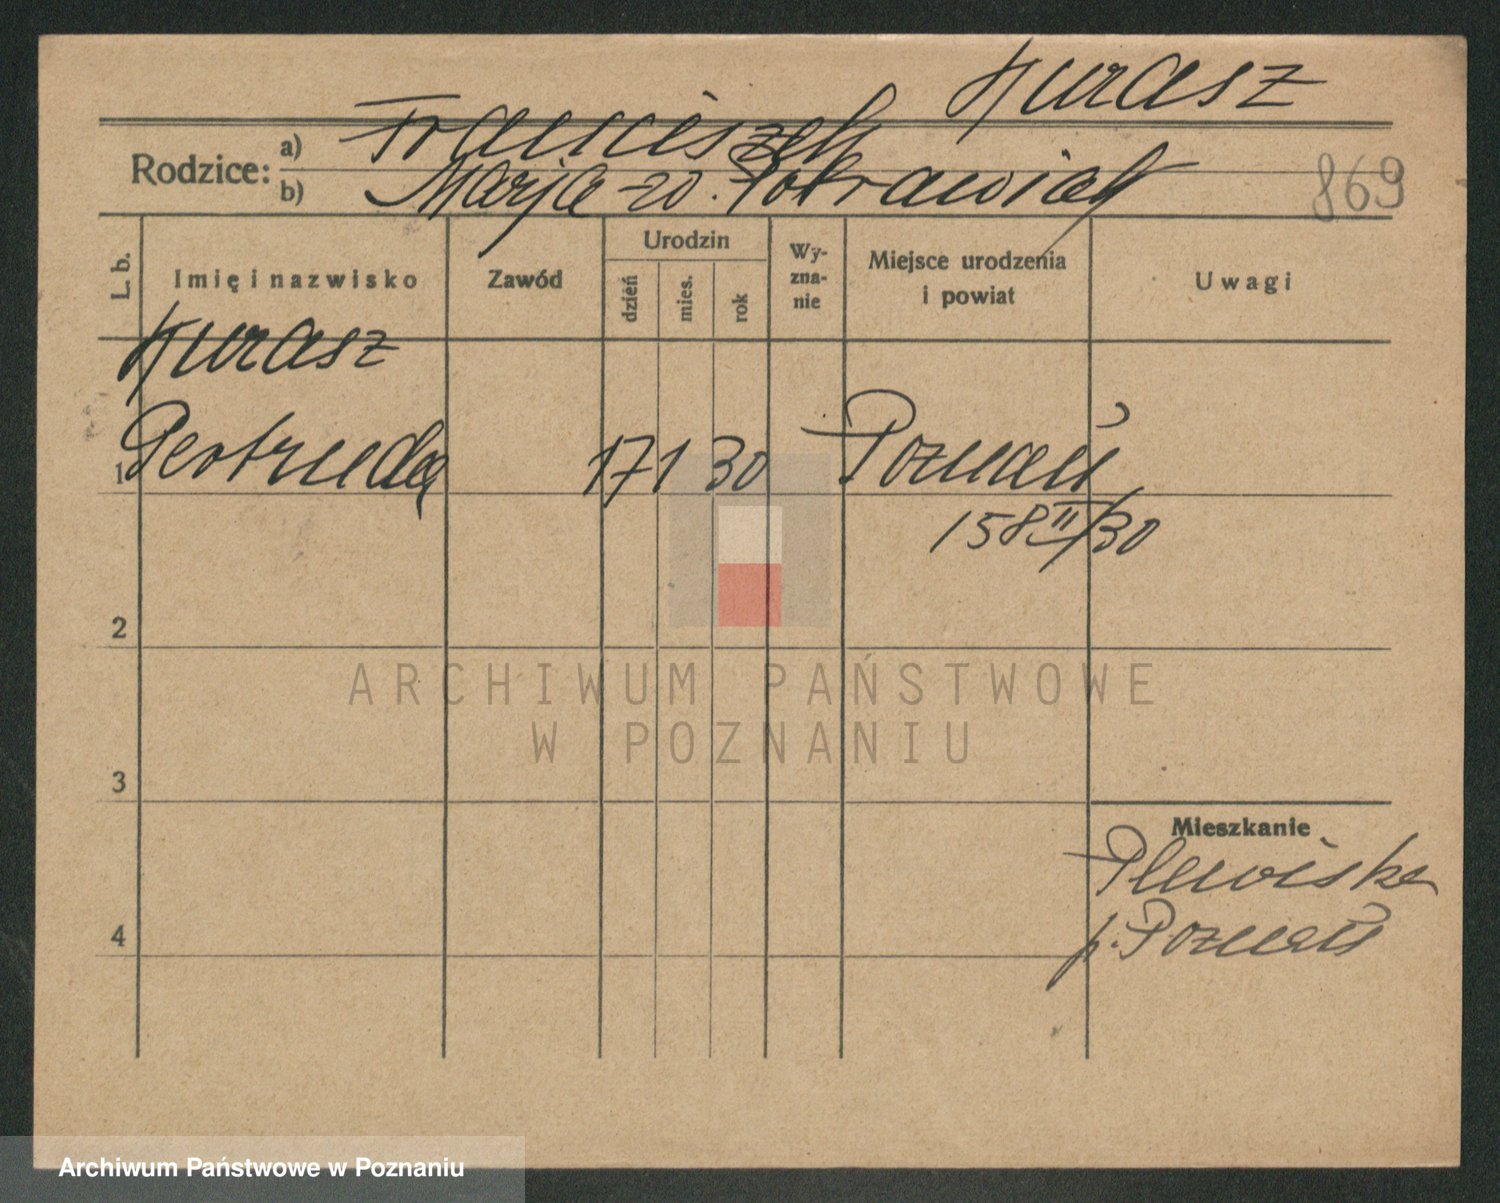 Kurasz
Rodzice: a) Franciszek
b) Marja z d. Potrawiak
869
L. b.
Imię i nazwisko
Zawód
Urodzin
dzień
mies.
rok
Wy-
zna-
nie
Miejsce urodzenia
i powiat
Uwagi
Kurasz
1 Gertruda 17 1 30 Poznań
158 II/30
2
3
4
Mieszkanie
Plewiska
p. Poznań
ARCHIWUM PAŃSTWOWE
W POZNANIU
Archiwum Państwowe w Poznaniu